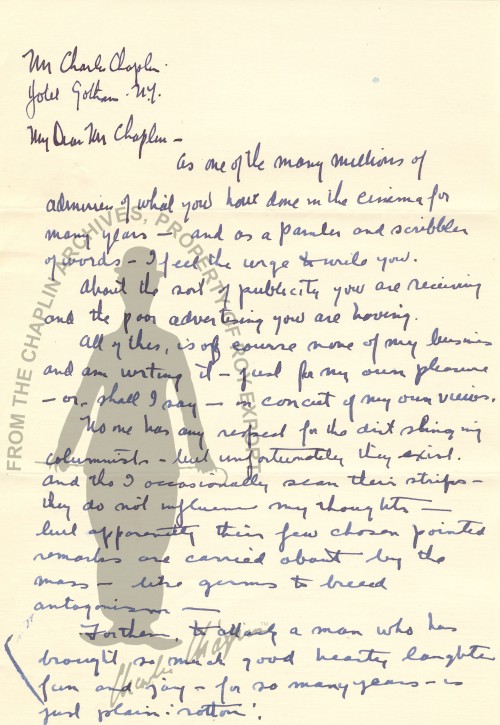 Mr Charlie Chaplin.
Hotel Gotham. N.Y.
My Dear Mr Chaplin —
As one of the many millions of
admirers of what you have done in the cinema for
many years — and as a painter and scribbler
of words — I feel the urge to write you.
About the sort of publicity you are receiving
and the poor advertising you are having.
All of this, is of course none of my business
and am writing it — just for my own pleasure
— or, shall I say — in conceit of my own views.
No one has any respect for the dirt slinging
columnists — but unfortunately they exist.
and tho I occasionally scan their strips —
they do not influence my thoughts —
but apparently their few chosen pointed
remarks are carried about by the
mass — like germs to breed
antagonism —
For them, to attack a man who has
brought so much good hearty laughter
fun and joy — for so many years — is
just plain: rotten!
FROM THE CHAPLIN ARCHIVES, PROPERTY OF ROY EXPORT
Charlie Chaplin